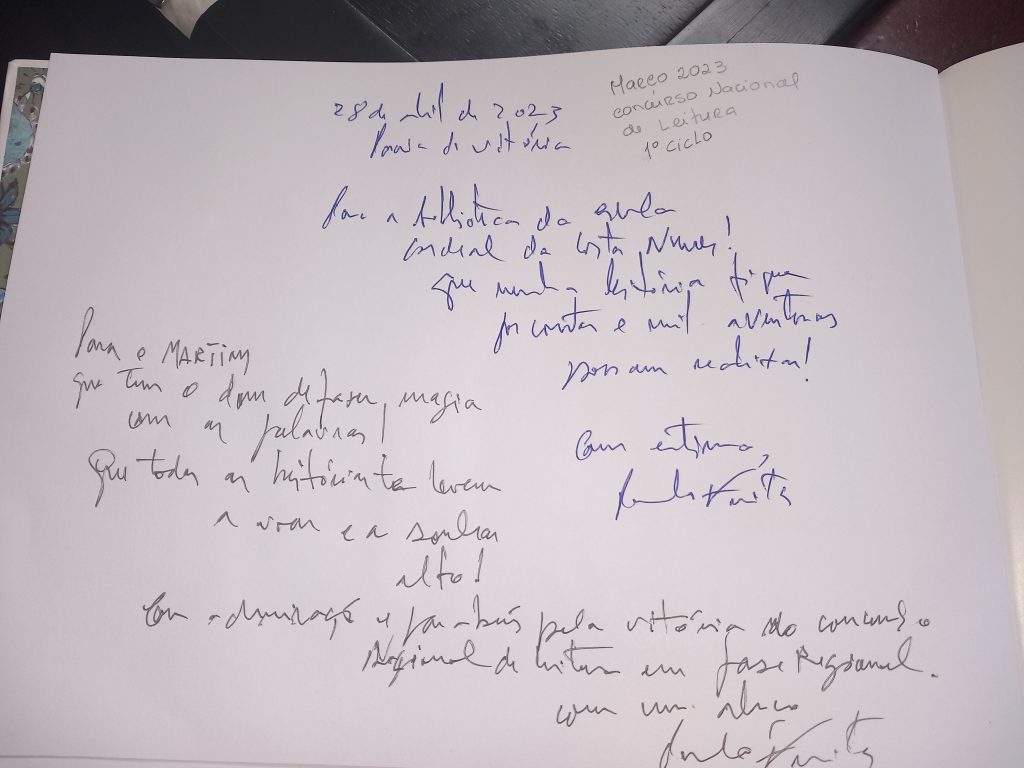 Março 2023
concurso Nacional
de Leitura
1º Ciclo
28 de abril de 2023
Praia da vitória
Para a biblioteca da escola
cardeal da Costa Nunes!
Que nenhuma história fique
por contar e mil aventuras
possam
Com estima,
Para o MARTIM
que tem o dom de fazer magia
com as palavras!
Que todas as histórias te levem
a voar e a sonhar
alto!
Com admiração e parabéns pela vitória do concurso
Nacional de leitura em fase Regional.
com um abraço